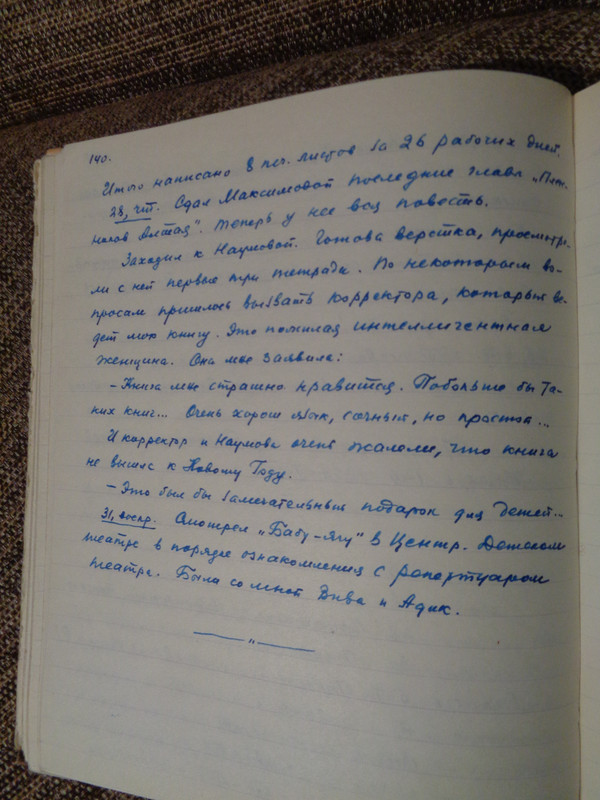 140.
Итого написано 8 печ. листов за 26 рабочих дней.
28, чт. Сдал Максимовой последние главы „Плен-
ников Алтая". Теперь у нее вся повесть.
Заходил к Наумовой. Готова верстка, просмотре-
ли с ней первые три тетради. По некоторым во-
просам пришлось вызвать корректора, которая ве-
дет мою книгу. Это пожилая интеллигентная
женщина. Она мне заявила:
– Книга мне страшно нравится. Побольше бы та-
ких книг... Очень хорош язык, сочный, но простой...
И корректор и Наумова очень жалели, что книга
не вышла к Новому Году.
– Это был бы замечательный подарок для детей...
31, воскр. Смотрел „Бабу-Ягу" в Центр. Детском
театре в порядке ознакомления с репертуаром
театра. Были со мной Вива и Адик.